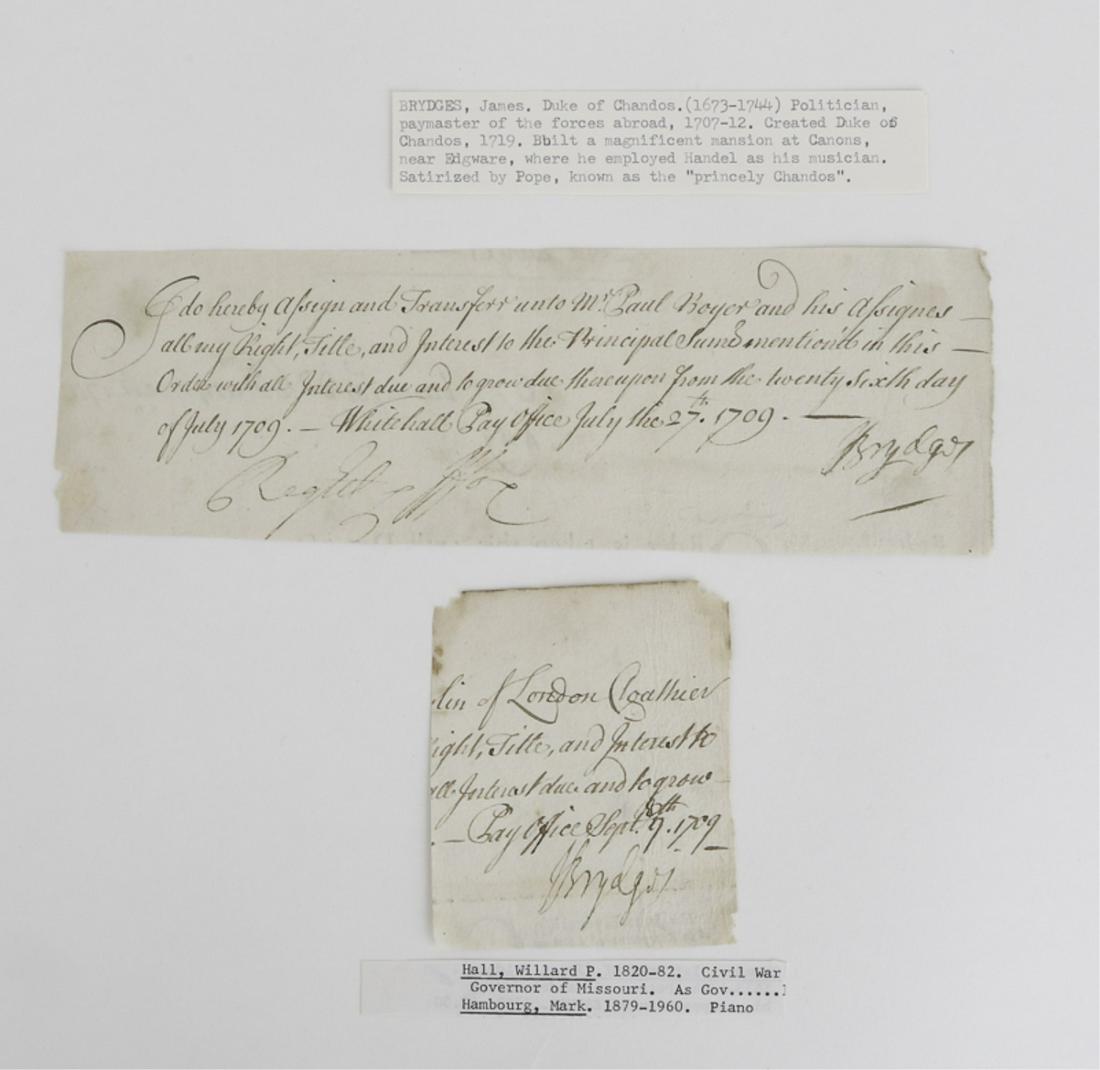 BRYDGES, James. Duke of Chandos.(1673-1744) Politician,
paymaster of the forces abroad, 1707-12. Created Duke of
Chandos, 1719. Bbilt a magnificent mansion at Canons,
near Edgware, where he employed Handel as his musician.
Satirized by Pope, known as the "princely Chandos".
I do hereby Assign and Transferr unto Mr. Paul Boyer and his Assignes —
all my Right, Title, and Interest to the Principal Summ mention'd in this —
Order with all Interest due and to grow due thereupon from the twenty sixth day
of July 1709. — Whitehall Pay Office July the 27th. 1709. —
JBrydges
lin of London Cloathier
ight, Title, and Interest to
all Interest due and to grow —
. — Pay Office Sept. 1709
JBrydges
Hall, Willard P. 1820-82. Civil War
Governor of Missouri. As Gov......
Hambourg, Mark. 1879-1960. Piano